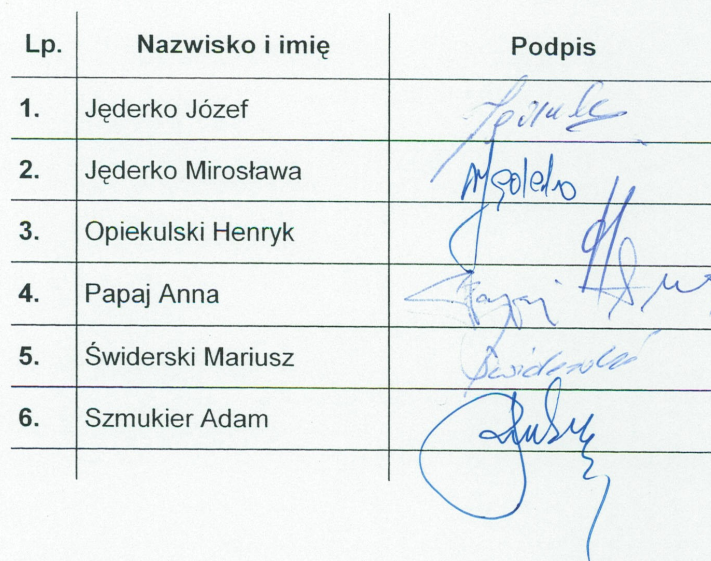 Lp. Nazwisko i imię Podpis
1. Jęderko Józef
2. Jęderko Mirosława
3. Opiekulski Henryk
4. Papaj Anna
5. Świderski Mariusz
6. Szmukier Adam